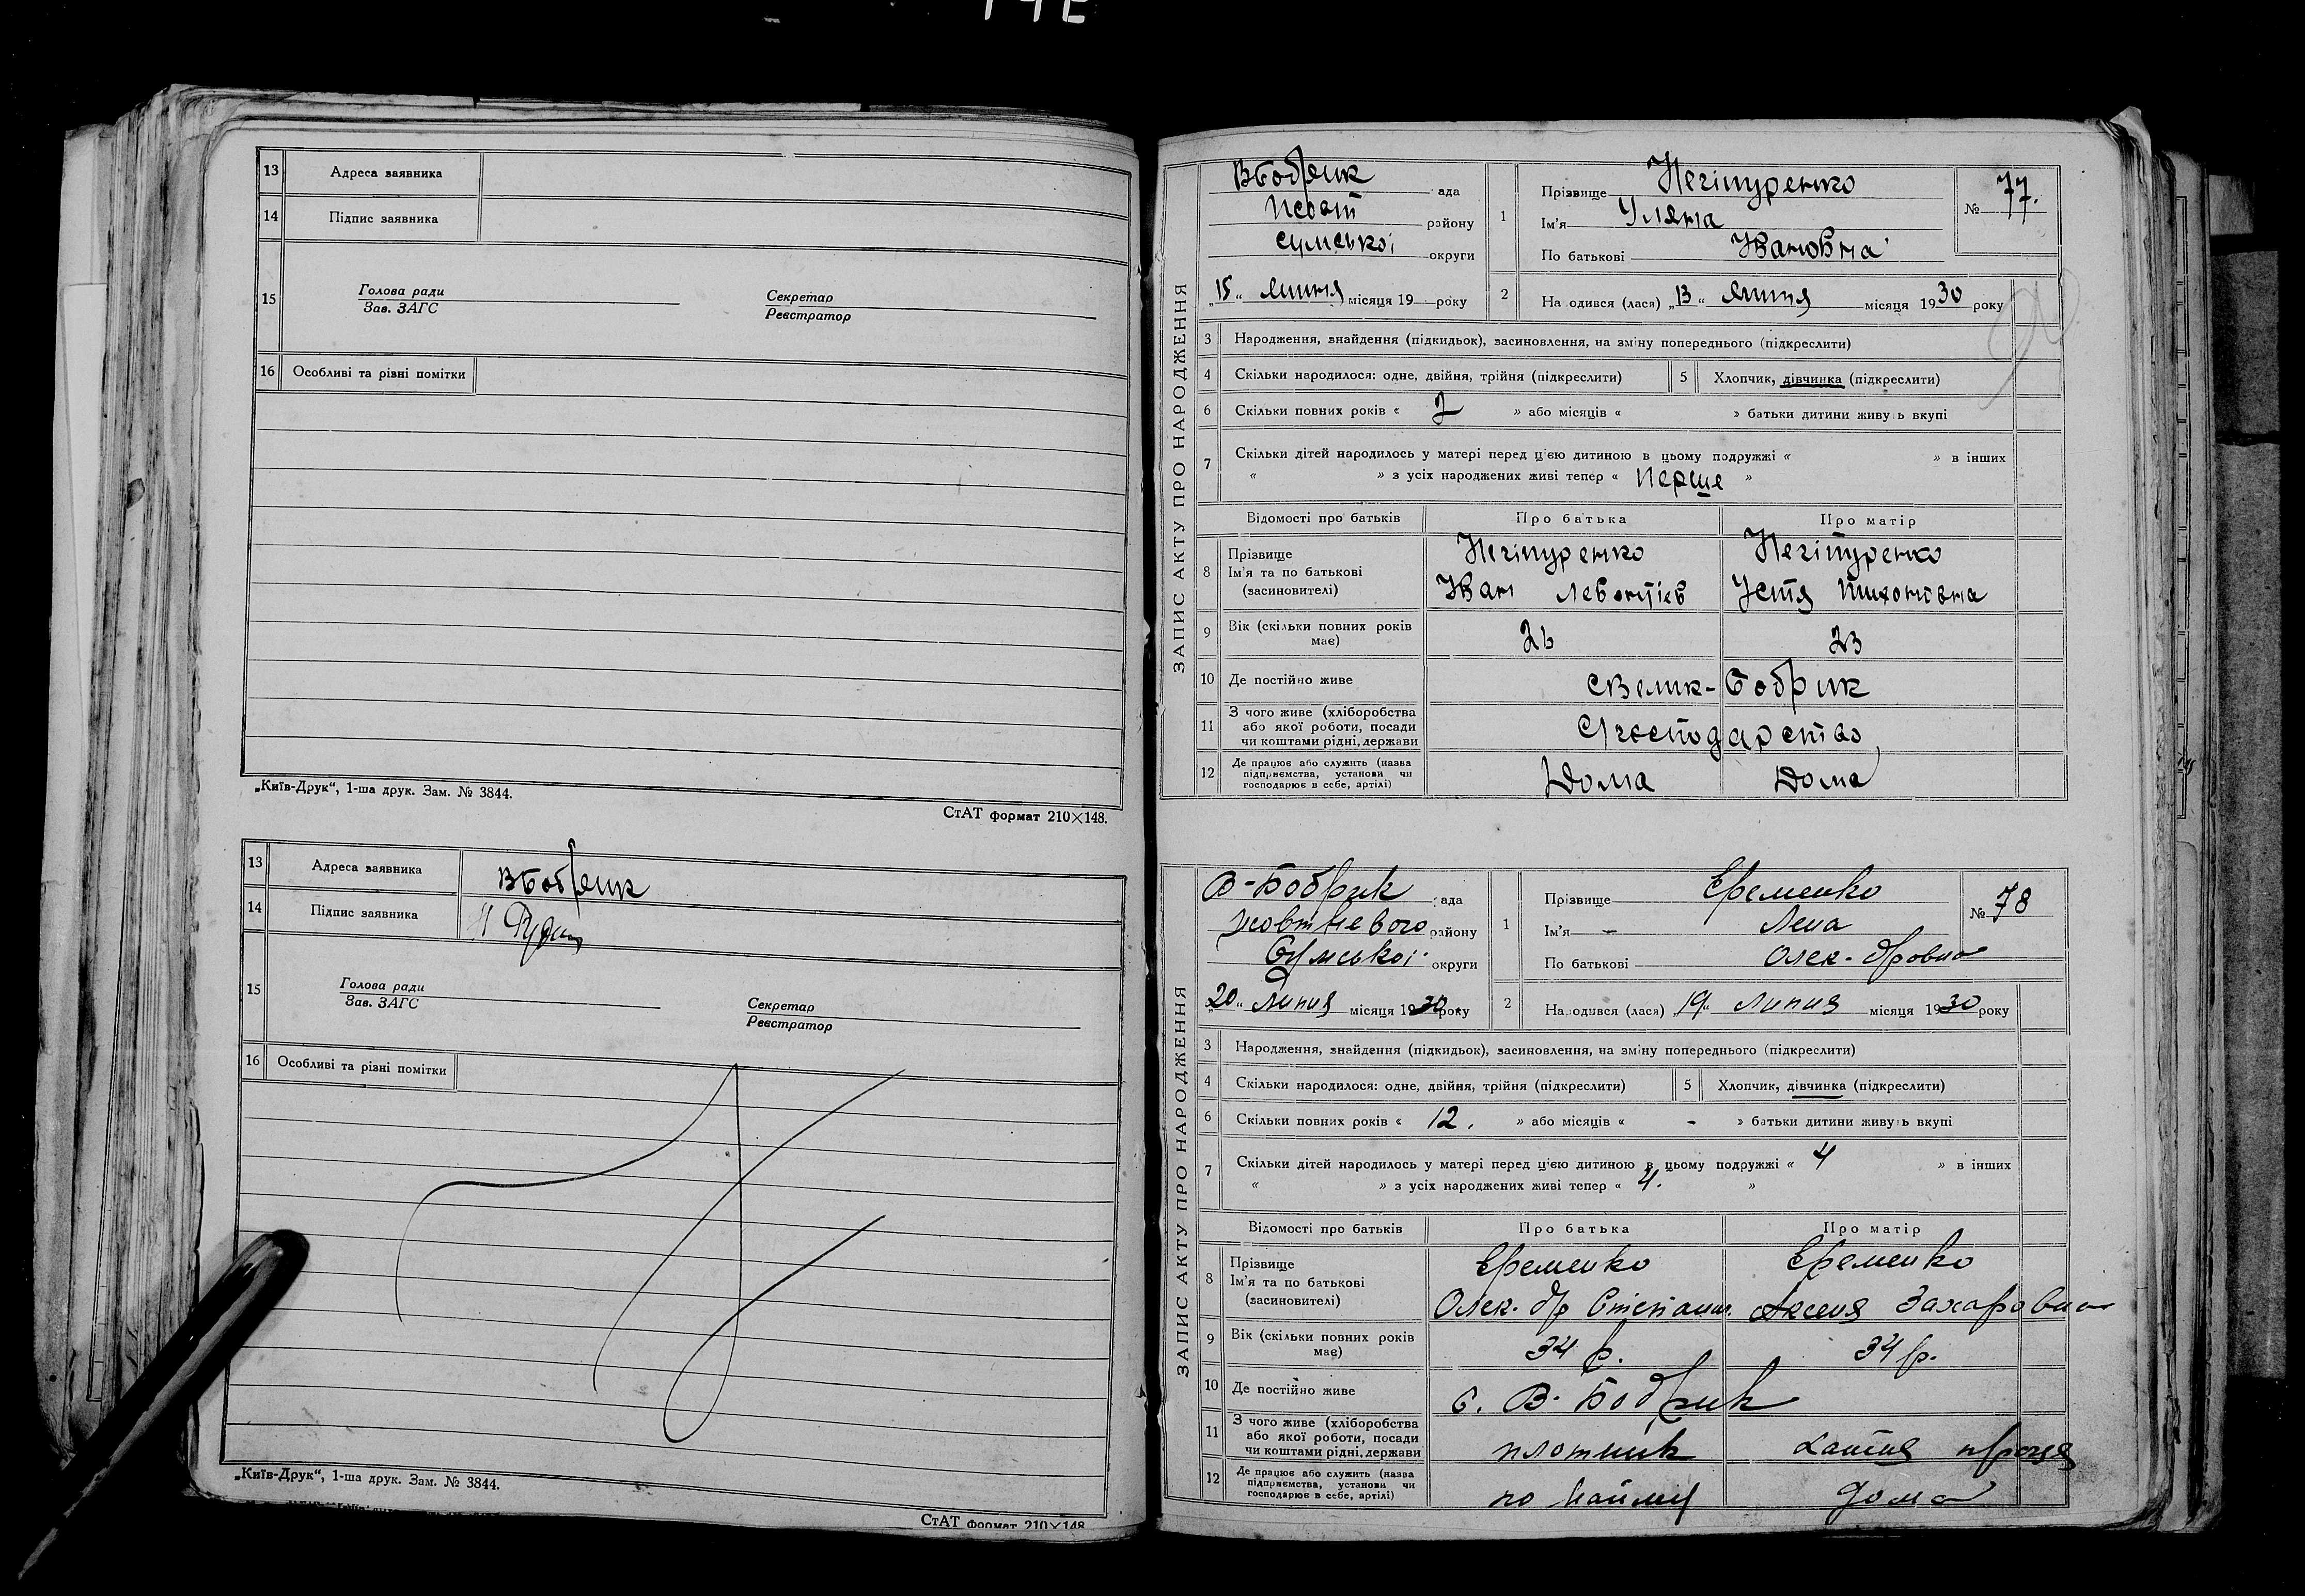 13 Адреса заявника
14 Підпис заявника
15 Голова ради
Зав. ЗАГС
Секретар
Реєстратор
16 Особливі та різні помітки
„Київ-Друк“, 1-ша друк. Зам. № 3844.
СтАТ формат 210×148.
13 Адреса заявника ВБобрик
14 Підпис заявника
15 Голова ради
Зав. ЗАГС
Секретар
Реєстратор
16 Особливі та різні помітки
„Київ-Друк“, 1-ша друк. Зам. № 3844.
СтАТ формат 210×148
ЗАПИС АКТУ ПРО НАРОДЖЕННЯ
ВБобрик рада
району
Сумської округи
„15“ липня місяця 19 року
1 Прізвище Нечіпуренко
Ім'я Уляна
По батькові Івановна
№ 77.
2 Народився (лася) „13“ липня місяця 1930 року
3 Народження, знайдення (підкидьок), засиновлення, на зміну попереднього (підкреслити)
4 Скільки народилося: одне, двійня, трійня (підкреслити)
5 Хлопчик, дівчинка (підкреслити)
6 Скільки повних років « 2 » або місяців « » батьки дитини живуть вкупі
7 Скільки дітей народилось у матері перед цією дитиною в цьому подружжі « » в інших
« » з усіх народжених живі тепер « перше »
Відомості про батьків Про батька Про матір
8 Прізвище
Ім'я та по батькові
(засиновителі)
Нечіпуренко
Іван Левонтіев
Нечіпуренко
Устя Тихонівна
9 Вік (скільки повних років має) 26 23
10 Де постійно живе с Велик-Бобрик
11 З чого живе (хліборобства
або якої роботи, посади
чи коштами рідні, держави
12 Де працює або служить (назва
підприємства, установи чи
господарює в себе, артілі)
Дома Дома
ЗАПИС АКТУ ПРО НАРОДЖЕННЯ
В-Бобрик рада
Жовтневого району
Сумської округи
„20“ Липня місяця 1930 року
1 Прізвище Єременко
Ім'я - Лена
По батькові Олек-дровна
№ 78
2 Народився (лася) „19“ Липня місяця 1930 року
3 Народження, знайдення (підкидьок), засиновлення, на зміну попереднього (підкреслити)
4 Скільки народилося: одне, двійня, трійня (підкреслити)
5 Хлопчик, дівчинка (підкреслити)
6 Скільки повних років « 12. » або місяців « - » батьки дитини живуть вкупі
7 Скільки дітей народилось у матері перед цією дитиною в цьому подружжі « 4 » в інших
« » з усіх народжених живі тепер « 4. »
Відомості про батьків Про батька Про матір
8 Прізвище
Ім'я та по батькові
(засиновителі)
Єременко
Олек-др Степанов.
Єременко
Аксеня Захаровна
9 Вік (скільки повних років має) 34 р. 34 р.
10 Де постійно живе с. В-Бобрик
11 З чого живе (хліборобства
або якої роботи, посади
чи коштами рідні, держави
плотник хатня праця
12 Де працює або служить (назва
підприємства, установи чи
господарює в себе, артілі)
по найму дома